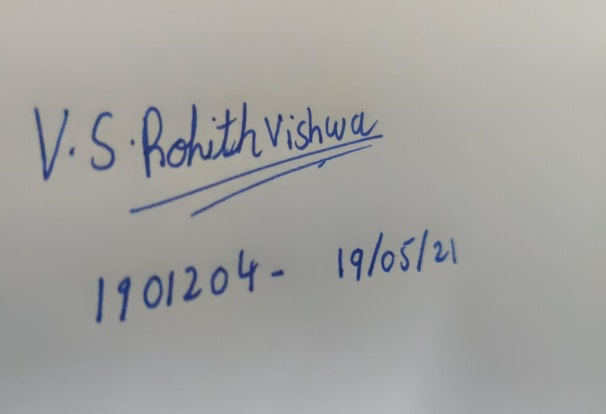 V.S.Rohith Vishwa
1901204- 19/05/21